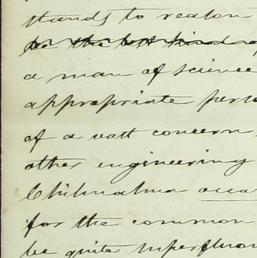 stands to reason
be the best kind of
a man of science
appropriate pers
of a vast concern
other engineering
Chihuahua
for the common
be quite superfluou